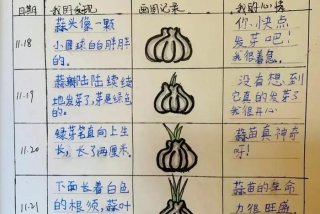 日期 我的发现 画图记录 我的心情
11.18
蒜头像一颗
小圆球白白胖胖
的。
你快点
发芽吧！
我很着急。
11.19
蒜瓣陆陆续续
地发芽了，芽是绿色
的。
没有想到
它真的发芽了
我很开心
11.20
绿芽笔直向上生
长，长了两厘米。
蒜苗真神奇
呀！
11.21
下面长着白色
的根须，蒜叶
蒜苗的生命
力很旺盛